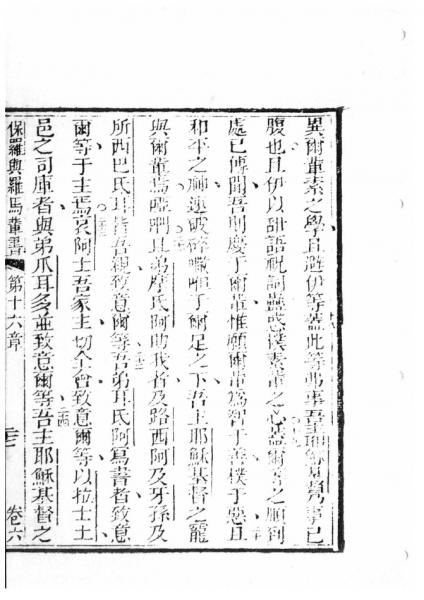 異爾輩素之學且避伊等蓋此等弗事吾主耶穌基督事己
腹也且伊以甜語祝詞蠱惑樸素輩之心蓋爾等之順到
處已傳聞吾則慶于爾輩惟願爾輩為智于善樸于惡且
和平之神速破碎于爾足之下吾主耶穌基督之寵
與爾輩焉啞們且弟摩氏阿助我者及路西阿及牙孫及
所西巴氏耳皆吾親致意爾等吾弟耳氏阿寫書者致意
爾等于主焉家阿士吾家主切全會致意爾等以拉士土
邑之司庫者與弟爪耳多並致意爾等吾主耶穌基督之
保羅與羅馬輩書 第十六章 卷六